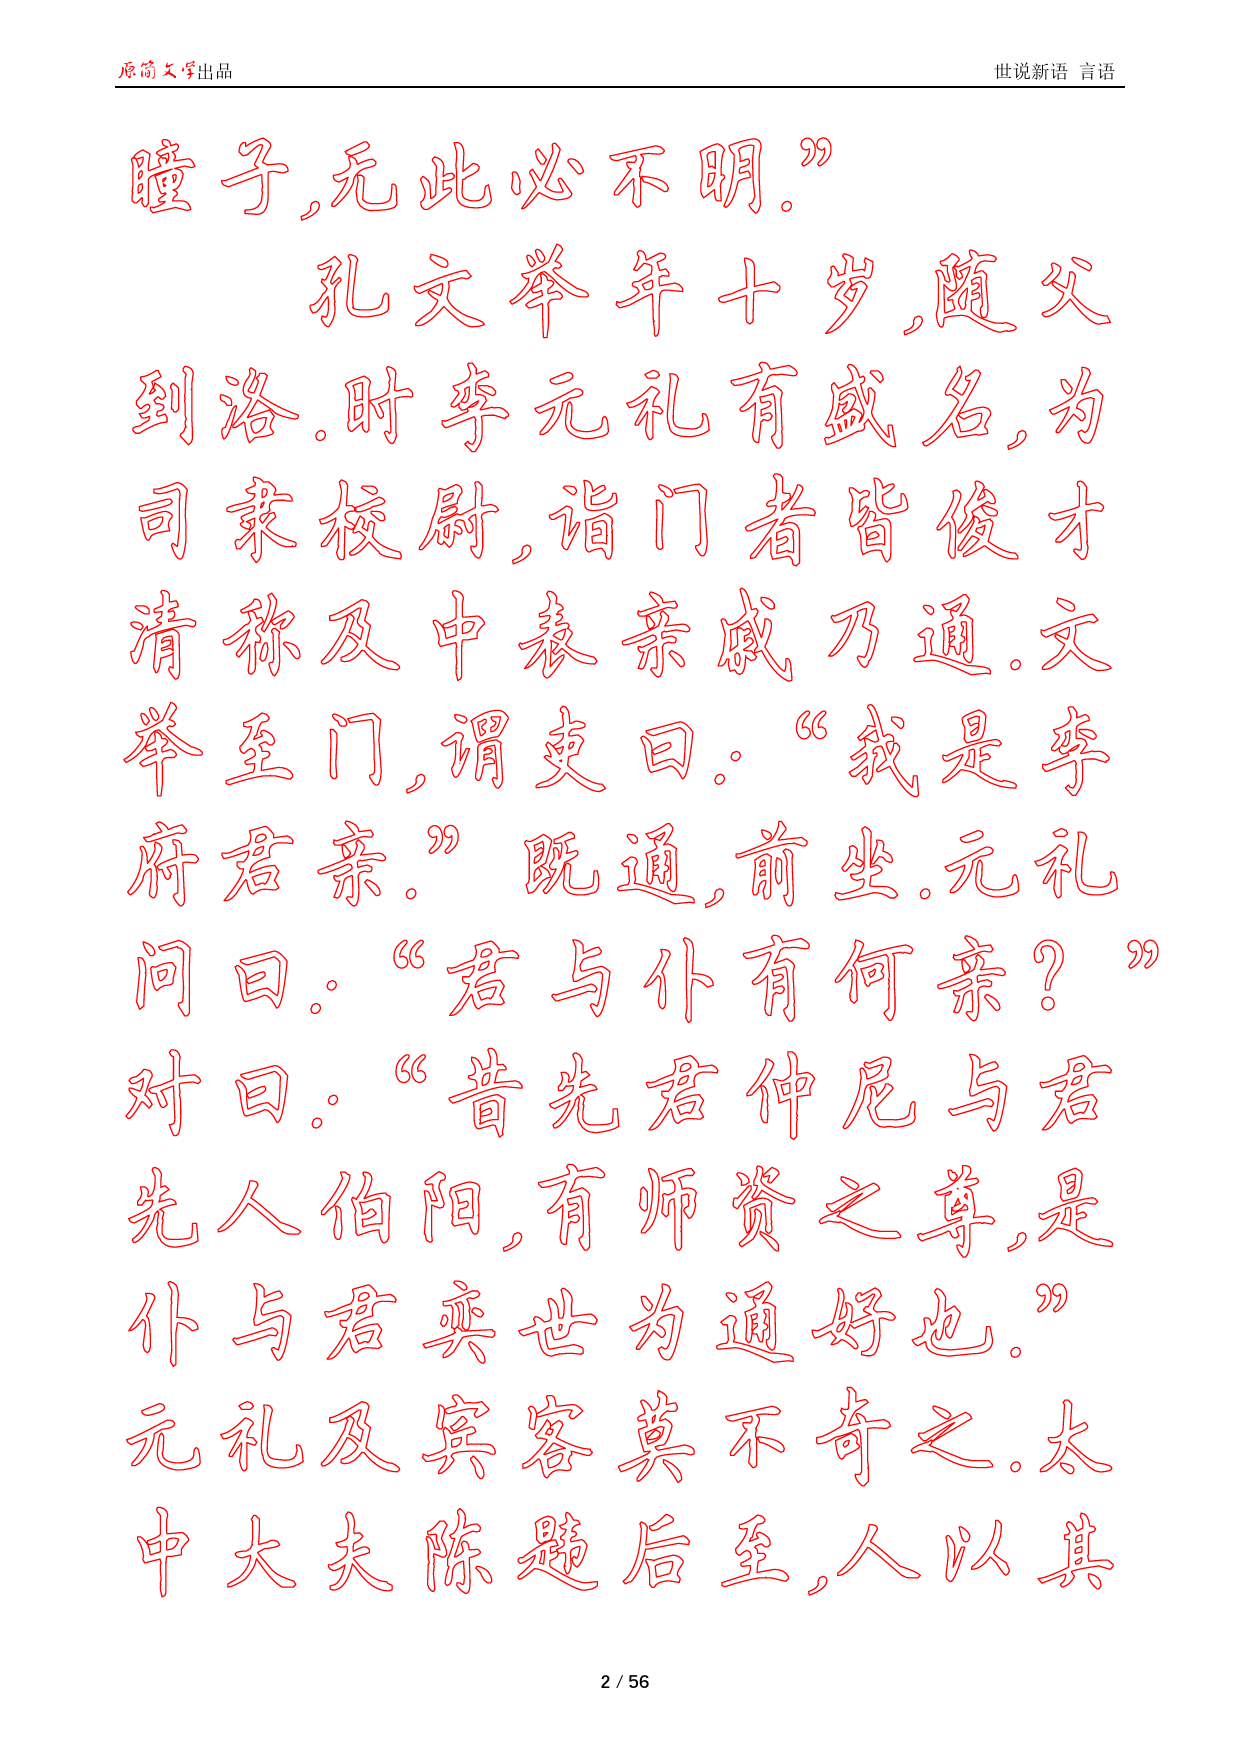 原简文学出品 世说新语 言语
瞳子,无此必不明.”
孔文举年十岁,随父
到洛.时李元礼有盛名,为
司隶校尉,诣门者皆俊才
清称及中表亲戚乃通.文
举至门,谓吏曰:“我是李
府君亲.” 既通,前坐.元礼
问曰:“君与仆有何亲? ”
对曰:“昔先君仲尼与君
先人伯阳,有师资之尊,是
仆与君奕世为通好也.”
元礼及宾客莫不奇之.太
中大夫陈韪后至,人以其
2 / 56